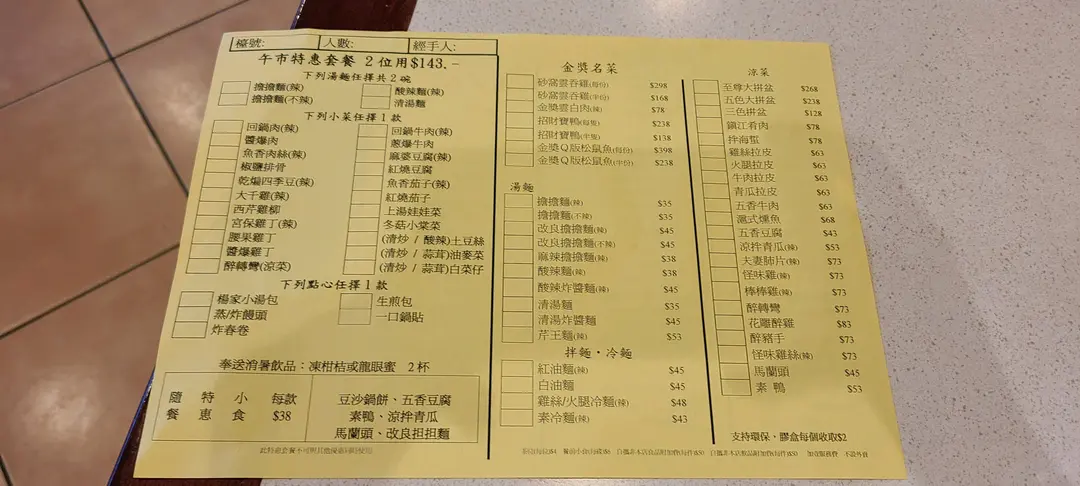 檯號: 人數: 經手人:
午市特惠套餐 2 位用$143.-
下列湯麵任擇共2碗
擔擔麵(辣) 酸辣麵(辣)
擔擔麵(不辣) 清湯麵
下列小菜任擇1款
回鍋肉(辣) 回鍋牛肉(辣)
醬爆肉 蔥爆牛肉
魚香肉絲(辣) 麻婆豆腐(辣)
椒鹽排骨 紅燒豆腐
乾煸四季豆(辣) 魚香茄子(辣)
大千雞(辣) 紅燒茄子
西芹雞柳 上湯娃娃菜
宮保雞丁(辣) 冬菇小棠菜
腰果雞丁 (清炒 / 酸辣)土豆絲
醬爆雞丁 (清炒 / 蒜茸)油麥菜
醉轉彎(涼菜) (清炒 / 蒜茸)白菜仔
下列點心任擇1款
楊家小湯包 生煎包
蒸/炸饅頭 一口鍋貼
炸春卷
奉送消暑飲品：凍柑桔或龍眼蜜 2杯
隨 特 小 每款
餐 惠 食 $38
豆沙鍋餅、五香豆腐
素鴨、涼拌青瓜
馬蘭頭、改良担担麵
金獎名菜
砂窩雲吞雞(每份) $298
砂窩雲吞雞(半份) $168
金獎雲白肉(辣) $78
招財寶鴨(每隻) $238
招財寶鴨(半隻) $138
金獎Q版松鼠魚(每份) $398
金獎Q版松鼠魚(半份) $238
湯麵
擔擔麵(辣) $35
擔擔麵(不辣) $35
改良擔擔麵(辣) $45
改良擔擔麵(不辣) $45
麻辣擔擔麵(辣) $38
酸辣麵(辣) $38
酸辣炸醬麵(辣) $45
清湯麵 $35
清湯炸醬麵 $45
芹王麵(辣) $53
拌麵・冷麵
紅油麵(辣) $45
白油麵 $45
雞絲/火腿冷麵(辣) $48
素冷麵(辣) $43
涼菜
至尊大拼盆 $268
五色大拼盆 $238
三色拼盆 $128
鎮江肴肉 $78
拌海蜇 $78
雞絲拉皮 $63
火腿拉皮 $63
牛肉拉皮 $63
青瓜拉皮 $63
五香牛肉 $63
滬式燻魚 $68
五香豆腐 $43
涼拌青瓜(辣) $53
夫妻肺片(辣) $73
怪味雞(辣) $73
棒棒雞(辣) $73
醉轉彎 $73
花雕醉雞 $83
醉豬手 $73
怪味雞絲(辣) $73
馬蘭頭 $45
素 鴨 $53
支持環保，膠盒每個收取$2